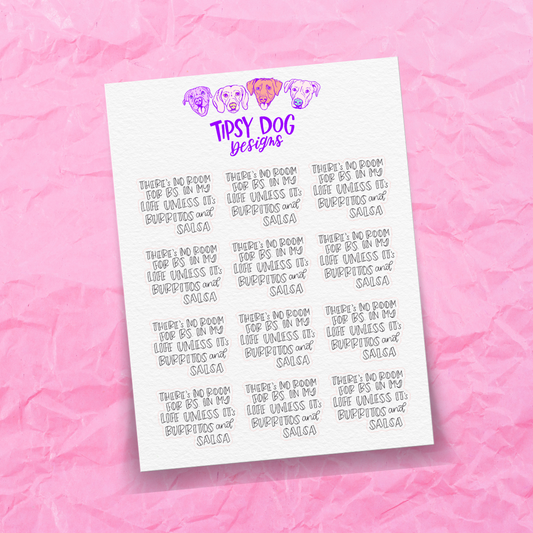 TIPSY DOG
Designs
THERE'S NO ROOM
FOR BS IN MY
LIFE UNLESS IT'S
BURRITOS and
SALSA
THERE'S NO ROOM
FOR BS IN MY
LIFE UNLESS IT'S
BURRITOS and
SALSA
THERE'S NO ROOM
FOR BS IN MY
LIFE UNLESS IT'S
BURRITOS and
SALSA
THERE'S NO ROOM
FOR BS IN MY
LIFE UNLESS IT'S
BURRITOS and
SALSA
THERE'S NO ROOM
FOR BS IN MY
LIFE UNLESS IT'S
BURRITOS and
SALSA
THERE'S NO ROOM
FOR BS IN MY
LIFE UNLESS IT'S
BURRITOS and
SALSA
THERE'S NO ROOM
FOR BS IN MY
LIFE UNLESS IT'S
BURRITOS and
SALSA
THERE'S NO ROOM
FOR BS IN MY
LIFE UNLESS IT'S
BURRITOS and
SALSA
THERE'S NO ROOM
FOR BS IN MY
LIFE UNLESS IT'S
BURRITOS and
SALSA
THERE'S NO ROOM
FOR BS IN MY
LIFE UNLESS IT'S
BURRITOS and
SALSA
THERE'S NO ROOM
FOR BS IN MY
LIFE UNLESS IT'S
BURRITOS and
SALSA
THERE'S NO ROOM
FOR BS IN MY
LIFE UNLESS IT'S
BURRITOS and
SALSA